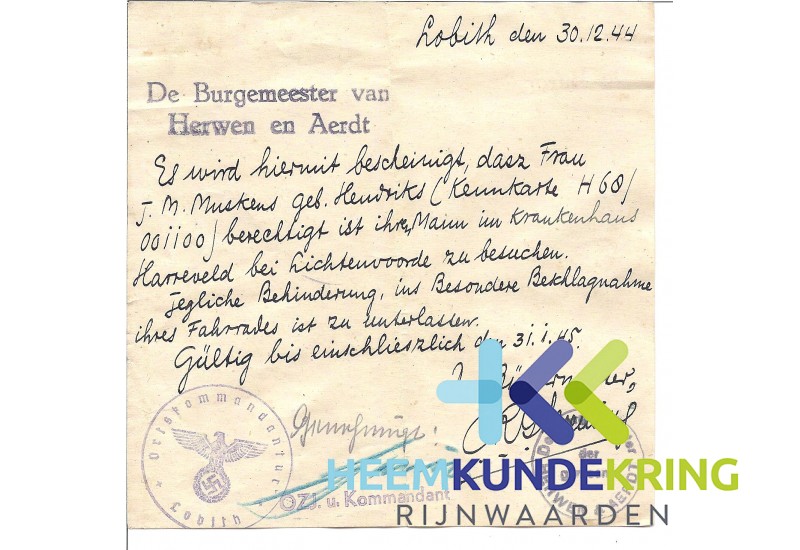 Lobith den 30.12.44
De Burgemeester van
Herwen en Aerdt
Es wird hiermit bescheinigt, dasz Frau
J. M. Muskens geb. Hendriks (Kennkarte H68/
001100) berechtigt ist ihren Mann im Krankenhaus
Harreveld bei Lichtenvoorde zu besuchen.
Jegliche Behinderung, ins Besondere Beschlagnahme
ihres Fahrrades ist zu unterlassen.
Gültig bis einschlieszlich den 31.1.45.
Genehmigt:
Ortskommandantur
Lobith
OZl. u. Kommandant
HEEMKUNDEKRING
RIJNWAARDEN